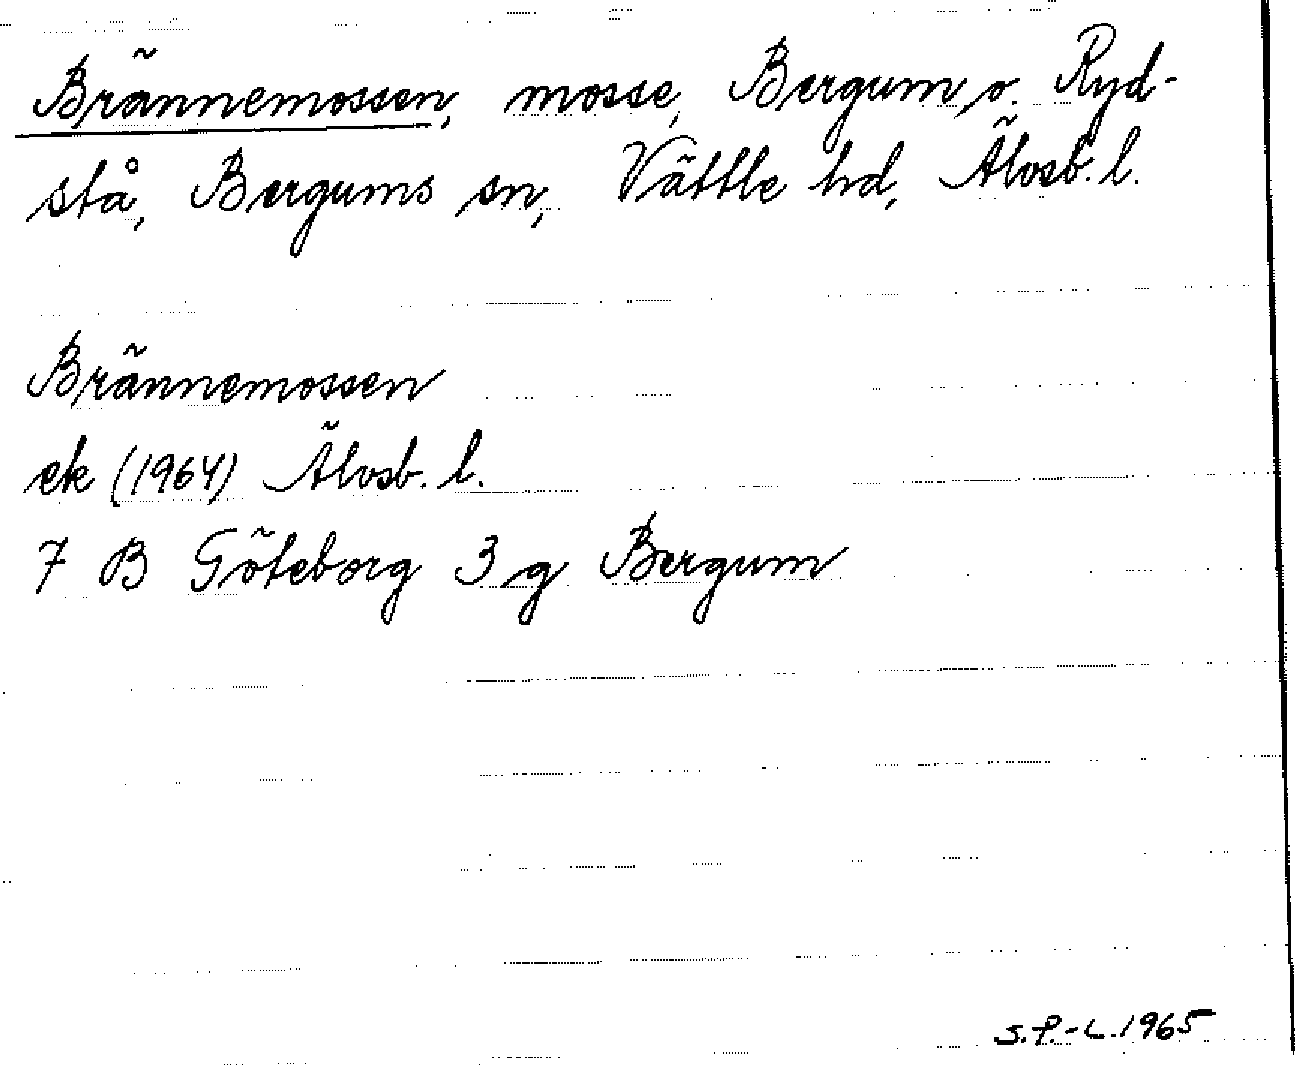 Brännemossen, mosse, Bergum o. Ryd-
stå, Bergums sn, Vättle hd, Älvsb. l.
Brännemossen
ek (1964) Älvsb. l.
7 B Göteborg 3 g Bergum
S.P.-L. 1965